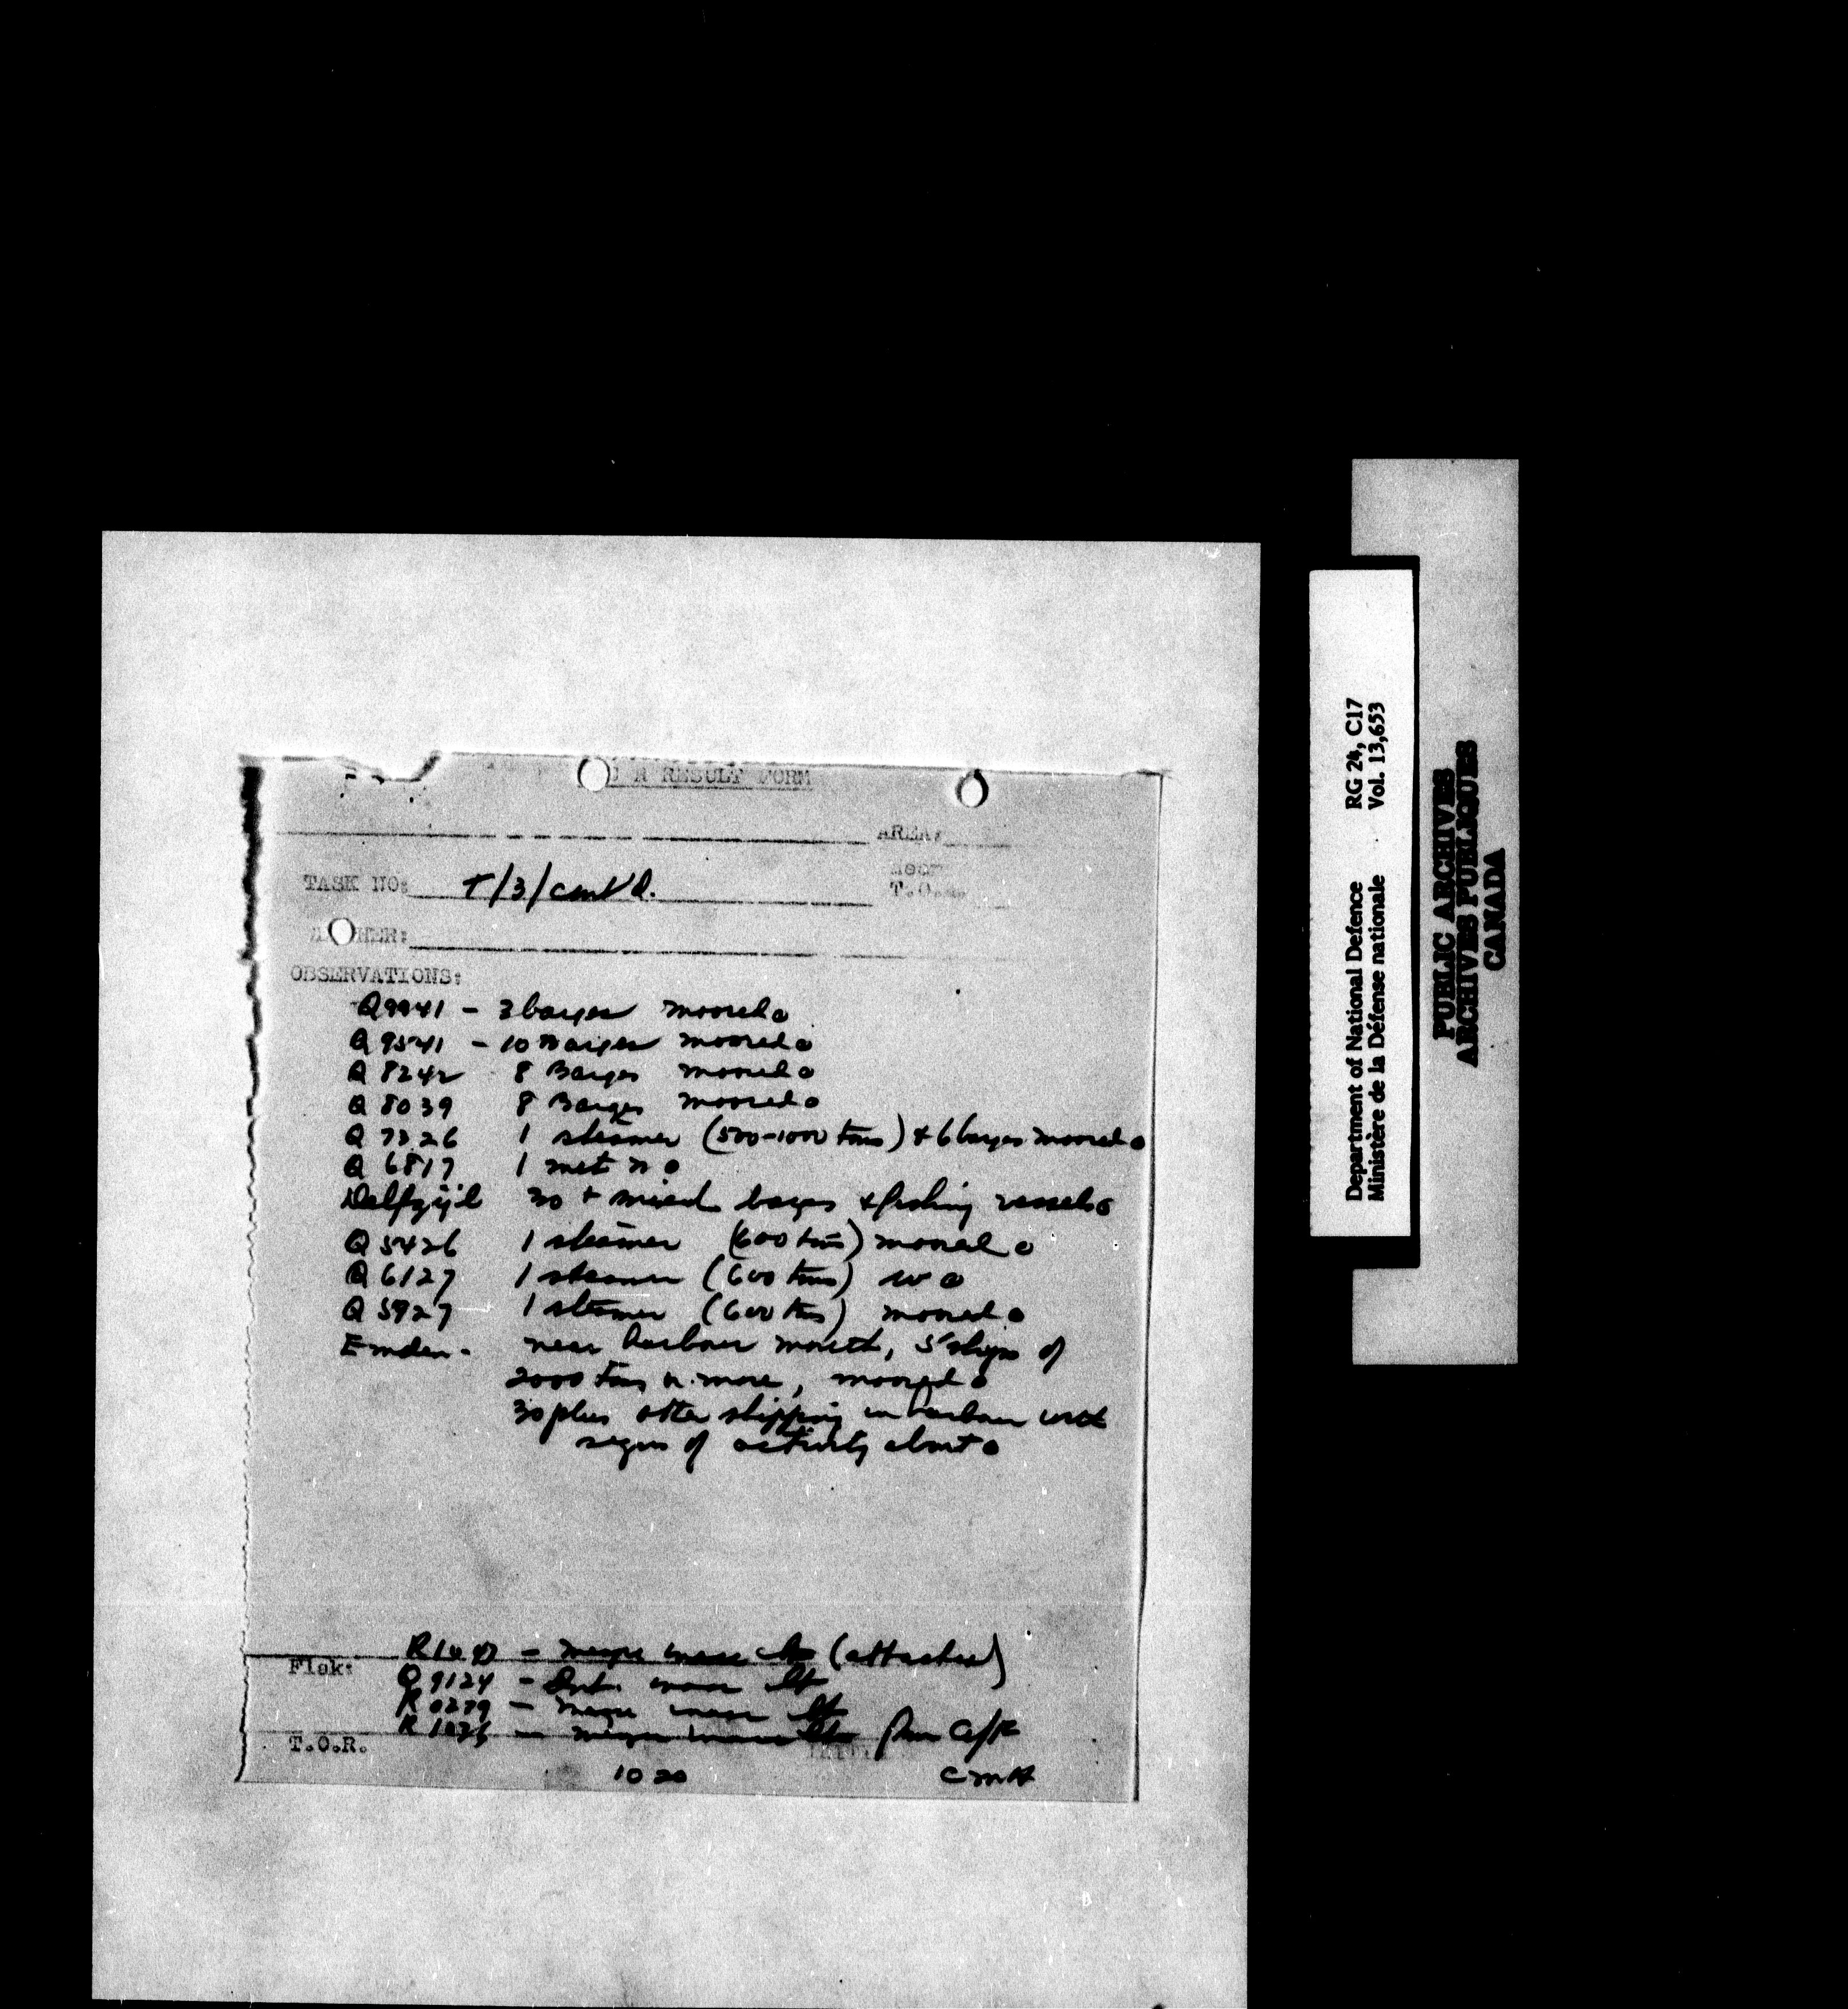 R RESULT FORM
AREA:
TASK NO: T/3/cont'd.
T.O.
HER:
OBSERVATIONS:
Q9941 - 3 barges moored.
Q9541 - 10 Barges moored.
Q8242 8 Barges moored.
Q8039 8 Barges moored.
Q7326 1 steamer (500-1000 tons) & 6 barges moored.
Q6817 1 met n.
Delfzijl 30 + mixed barges & fishing vessels.
Q5426 1 steamer (600 tons) moored.
Q6127 1 steamer (600 tons) w.
Q5927 1 steamer (600 tons) moored.
Emden - near harbour mouth, 5 ships of
2000 tons or more, moored.
30 plus other shipping in harbour with
signs of activity about.
- (attacked)
Flak: Q9124 - Int.
R0279 -
T.O.R.
1020 CMH
Department of National Defence RG 24, C17
Ministère de la Défense nationale Vol. 13,653
PUBLIC ARCHIVES
ARCHIVES PUBLIQUES
CANADA